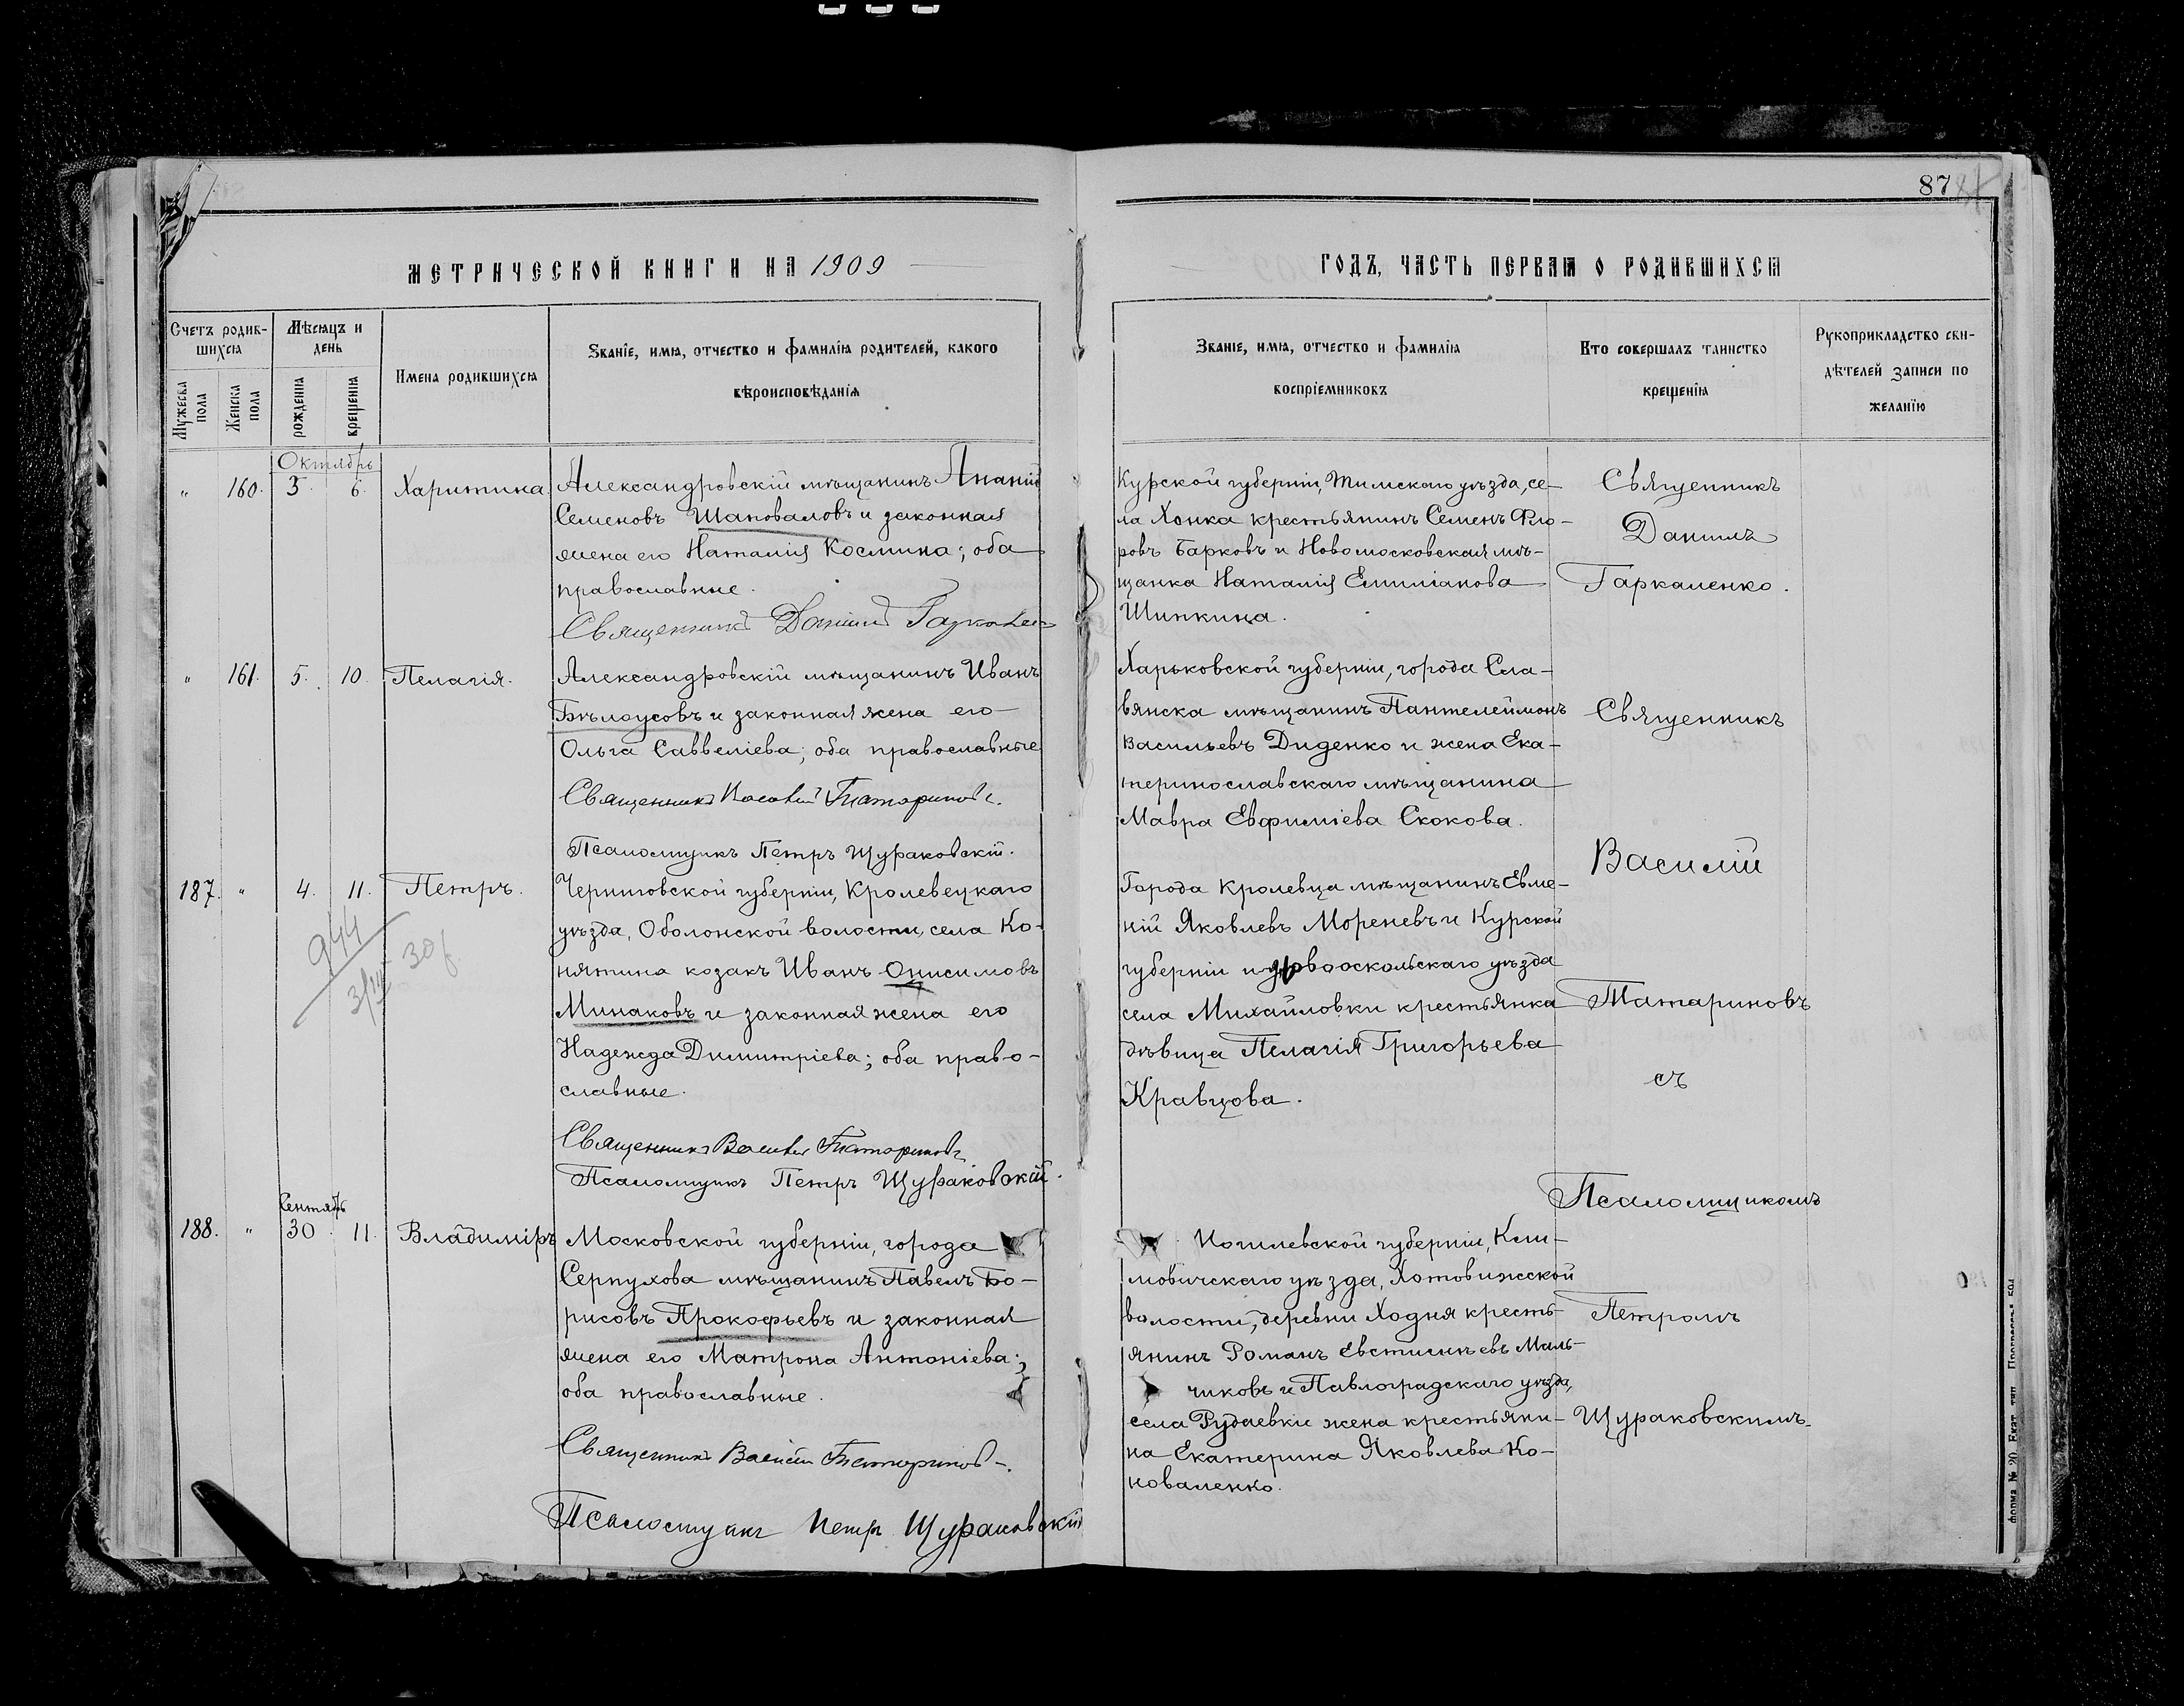 87
МЕТРИЧЕСКОЙ КНИГИ НА 1909
ГОДЪ, ЧАСТЬ ПЕРВАЯ О РОДИВШИХСЯ
Счетъ родив-
шихся
Мѣсяцъ и
день
Мужеска
пола
Женска
пола
рожденія
крещенія
Имена родившихся
Званіе, имя, отчество и фамилія родителей, какого
вѣроисповѣданія
Званіе, имя, отчество и фамилія
воспріемниковъ
Кто совершалъ таинство
крещенія
Рукоприкладство сви-
дѣтелей записи по
желанію
Октябрь
" 160. 5. 6. Харитина
Александровскій мѣщанинъ Ананій
Семеновъ Шаповаловъ и законная
жена его Наталія Космина; оба
православные.
Священникъ Даніилъ Гаркален
Курской губерніи, Тимскаго уѣзда, се-
ла Хонка крестьянинъ Семенъ Фло-
ровъ Барковъ и Новомосковская мѣ-
щанка Наталія Емиліанова
Шипкина.
Священникъ
Даніилъ
Гаркаленко.
" 161. 5. 10. Пелагія.
Александровскій мѣщанинъ Иванъ
Бѣлоусовъ и законная жена его
Ольга Саввеліева; оба православные
Священникъ Василій Татариновъ.
Псаломщикъ Петръ Щураковскій.
Харьковской губерніи, города Сла-
вянска мѣщанинъ Пантелеймонъ
Васильевъ Диденко и жена Ека-
теринославскаго мѣщанина
Мавра Евфиміева Скокова.
Священникъ
Василій
187. " 4. 11. Петръ.
944
30
Черниговской губерніи, Кролевецкаго
уѣзда, Оболонской волости, села Ко-
нятина козакъ Иванъ Онисимовъ
Минаковъ и законная жена его
Надежда Димитріева; оба право-
славные.
Священникъ Василій Татариновъ
Псаломщикъ Петръ Щураковскій.
Города Кролевца мѣщанинъ Евме-
ній Яковлевъ Мореневъ и Курской
губерніи и Новооскольскаго уѣзда
села Михайловки крестьянка
дѣвица Пелагія Григорьева
Кравцова.
Татариновъ
съ
Псаломщикомъ
Сентябрь
188. " 30. 11. Владиміръ
Московской губерніи, города
Серпухова мѣщанинъ Павелъ Бо-
рисовъ Прокофьевъ и законная
жена его Матрона Антоніева;
оба православные.
Священникъ Василій Татариновъ.
Псаломщикъ Петръ Щураковскій
Могилевской губерніи, Кли-
мовичскаго уѣзда, Хотовижской
волости, деревни Ходня кресть-
янинъ Романъ Евстигнѣевъ Маль-
чиковъ и Павлоградскаго уѣзда,
села Рудаевки жена крестьяни-
на Екатерина Яковлева Ко-
новаленко.
Петромъ
Щураковскимъ.
форма № 20 Екат. тип.